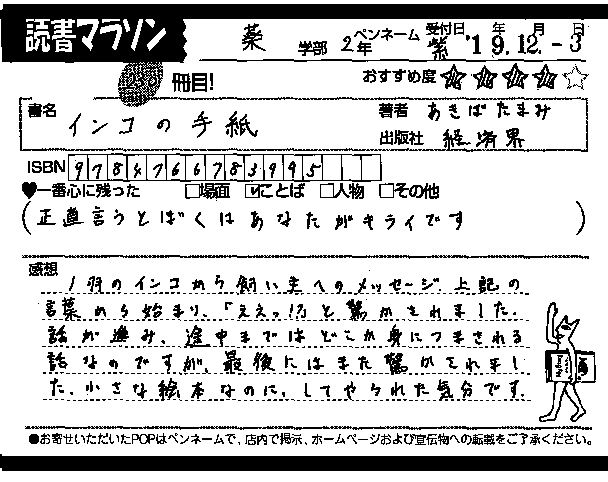 読書マラソン
薬 学部 2年 ペンネーム 紫 受付日 '19年12月-3日
冊目!
おすすめ度 ★★★★☆
書名 インコの手紙
著者 あきばたまみ
出版社 経済界
ISBN 9784766783995
♥一番心に残った □場面 ☑ことば □人物 □その他
(正直言うとぼくはあなたがキライです)
感想
1羽のインコから飼い主へのメッセージ。上記の
言葉から始まり、「ええっ!?」と驚かされました。
話が進み、途中まではどこか身につまされる
話なのですが、最後にはまた驚かされまし
た。小さな絵本なのに、してやられた気分です。
●お寄せいただいたPOPはペンネームで、店内で掲示、ホームページおよび宣伝物への転載をご了承ください。